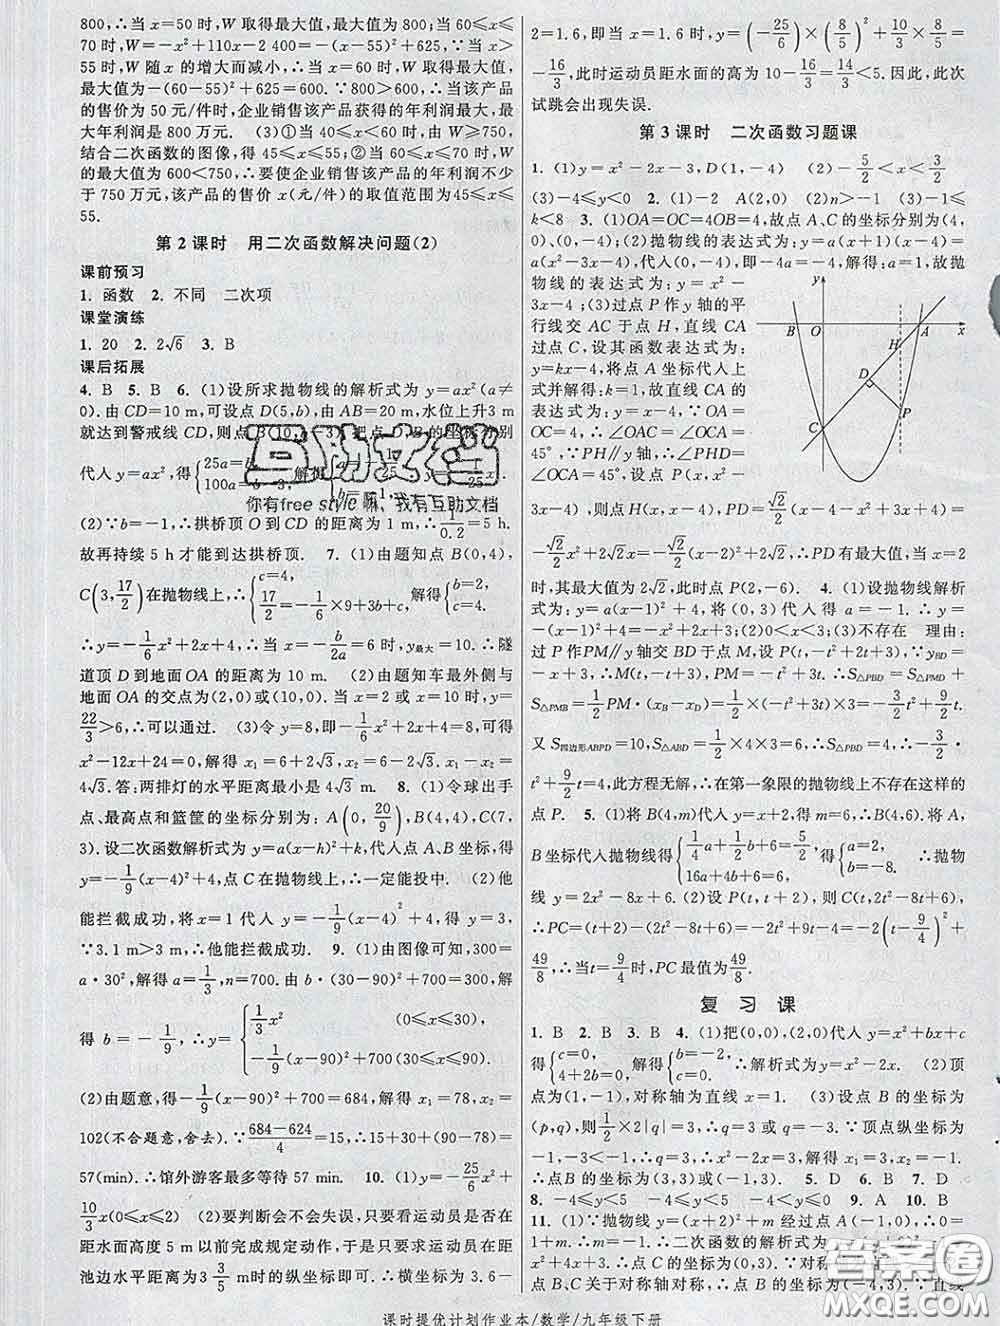 800,∴当 x=50 时,W 取得最大值,最大值为 800;当 60≤x≤
70 时,W=-x²+110x-2 400=-(x-55)²+625,∵当 x>
55 时,W 随 x 的增大而减小,∴当 x=60 时,W 取得最大值,
最大值为-(60-55)²+625=600.∵800>600,∴当该产品
的售价为 50 元/件时,企业销售该产品获得的年利润最大,最
大年利润是 800 万元. (3)①当 40≤x≤60 时,由 W≥750,
结合二次函数的图像,得 45≤x≤55;②当 60≤x≤70 时,W
的最大值为 600<750,∴要使企业销售该产品的年利润不少
于 750 万元,该产品的售价 x(元/件)的取值范围为45≤x≤
55.
第 2 课时 用二次函数解决问题(2)
课前预习
1. 函数 2. 不同 二次项
课堂演练
1. 20 2. 2√6 3. B
课后拓展
4. B 5. B 6. (1)设所求抛物线的解析式为 y=ax²(a≠
0).由 CD=10 m,可设点 D(5,b),由 AB=20 m,水位上升3 m
就达到警戒线 CD,则点 B(10,b-3).把点
代入 y=ax²,得{25a=b, 100a=b-3,
你有free style嘛,我有互助文档
(2)∵b=-1,∴拱桥顶 O 到 CD 的距离为 1 m,∴1/0.2=5 h.
故再持续 5 h 才能到达拱桥顶. 7. (1)由题知点 B(0,4),
C(3,17/2)在抛物线上,∴{c=4, 17/2=-1/6×9+3b+c, 解得{b=2, c=4.
∴y=-1/6x²+2x+4,∴当 x=-b/2a=6 时,y最大=10.∴隧
道顶 D 到地面 OA 的距离为 10 m. (2)由题知车最外侧与
地面 OA 的交点为(2,0)或(10,0). 当 x=2 或 x=10 时,y=
22/3>6,∴可以通过. (3)令 y=8,即-1/6x²+2x+4=8,可得
x²-12x+24=0,解得 x₁=6+2√3,x₂=6-2√3.则 x₁-x₂=
4√3.答:两排灯的水平距离最小是 4√3 m. 8. (1)令球出手
点、最高点和篮筐的坐标分别为: A(0,20/9),B(4,4),C(7,
3).设二次函数解析式为 y=a(x-h)²+k,代入点 A、B 坐标,得
y=-1/9(x-4)²+4,点 C 在抛物线上,∴一定能投中. (2)他
能拦截成功,将 x=1 代入 y=-1/9(x-4)²+4,得 y=3,
∵3.1 m>3 m,∴他能拦截成功. 9. (1)由图像可知,300=
a·30²,解得 a=1/3,n=700.由 b·(30-90)²+700=300,解
得 b=-1/9,∴y={1/3x² (0≤x≤30), -1/9(x-90)²+700(30≤x≤90).
(2)由题意,得-1/9(x-90)²+700=684,解得 x₁=78,x₂=
102(不合题意,舍去).∵(684-624)/4=15,∴15+30+(90-78)=
57(min).∴馆外游客最多等待 57 min. 10. (1)y=-25/6x²+
10/3x(0≤x≤2) (2)要判断会不会失误,只要看运动员是否在
距水面高度 5 m 以前完成规定动作,于是只要求运动员在距
池边水平距离为3 3/5 m时的纵坐标即可.∴横坐标为 3.6-
2=1.6,即当 x=1.6 时,y=(-25/6)×(8/5)²+10/3×8/5=
-16/3,此时运动员距水面的高为 10-16/3=14/3<5.因此,此次
试跳会出现失误.
第 3 课时 二次函数习题课
1. (1)y=x²-2x-3,D(1,-4) (2)-5/2<x≤3/2
(3)-4≤y≤0 2. (1)-2 A(2,0) (2)n>-1 (3)-1≤
k<8 3. (1)OA=OC=4OB=4,故点 A、C 的坐标分别为(4,
0)、(0,-4). (2)抛物线的表达式为:y=a(x+1)(x-4)=
a(x²-3x-4),代入(0,-4),即-4a=-4,解得:a=1,故抛
物线的表达式为:y=x²-
3x-4;(3)过点 P 作 y 轴的平
行线交 AC 于点 H,直线 CA
过点 C,设其函数表达式为:
y=kx-4,将点 A 坐标代入上
式并解得:k=1,故直线 CA 的
表达式为:y=x-4.∵OA=
OC=4,∴∠OAC=∠OCA=
45°.∵PH∥y 轴,∴∠PHD=
∠OCA=45°,设点 P(x,x²-
3x-4),则点 H(x,x-4),PD=√2/2(x-4-x²+3x+4)
=-√2/2x²+2√2x=-√2/2(x-2)²+2√2,∴PD有最大值,当 x=2
时,其最大值为 2√2,此时点 P(2,-6). 4. (1)设抛物线解析
式为:y=a(x-1)²+4,将(0,3)代入得 a=-1.∴y=
-(x-1)²+4=-x²+2x+3;(2)0<x<3;(3)不存在 理由:
过 P 作PM∥y 轴交 BD于点 M,设 P(t,-t²+2t+3),∵yBD=
-x+3,∴M(t,-t+3),PM=-t²+3t,∴S△PBD=S△PMD+
S△PMB=1/2PM·(xB-xD)=1/2×(-t²+3t)×3=-3/2t²+9/2t.
又S四边形ABPD=10,S△ABD=1/2×4×3=6,∴S△PBD=4,∴-3/2·
t²+9/2t=4,此方程无解,∴在第一象限的抛物线上不存在这样的
点 P. 5. (1)将 B(4,m)代入 y=x+2,得 m=6,∴B(4,6).将 A,
B 坐标代入抛物线得{1/4a+1/2b+6=5/2, 16a+4b+6=6, 得{a=2, b=-8. ∴抛物
线 y=2x²-8x+6; (2)设 P(t,t+2),则 C(t,2t²-8t+6),
∴PC=(t+2)-(2t²-8t+6)=-2t²+9t-4=-2(t-9/4)²+
49/8,∴当t=9/4时,PC最值为49/8.
复 习 课
1. B 2. B 3. B 4. (1)把(0,0),(2,0)代入 y=x²+bx+c
得{c=0, 4+2b=0, 解得{b=-2, c=0. ∴解析式为 y=x²-2x. (2)顶
点为(1,-1),对称轴为直线 x=1. (3)设点 B 的坐标为
(p,q),则1/2×2|q|=3,∴q=3 或 q=-3.∵顶点纵坐标为
-1,-3<-1,∴q=3.∴x²-2x=3,解得 x₁=3,x₂=-1,
∴点B 的坐标为(3,3)或(-1,3). 5. D 6. B 7. D
8. -4≤y≤5 -4≤y≤5 9. A 10. B
11. (1)∵抛物线 y=(x+2)²+m 经过点 A(-1,0),∴0=
1+m,∴m=-1,∴二次函数的解析式为 y=(x+2)²-1=
x²+4x+3,∴点 C 坐标为(0,3),∵对称轴为直线 x=-2,
点B,C 关于对称轴对称,∴点 B 的坐标为(-4,3).∵直线
B O A x y H D P C
答案圈
课时提优计划作业本/数学/九年级下册